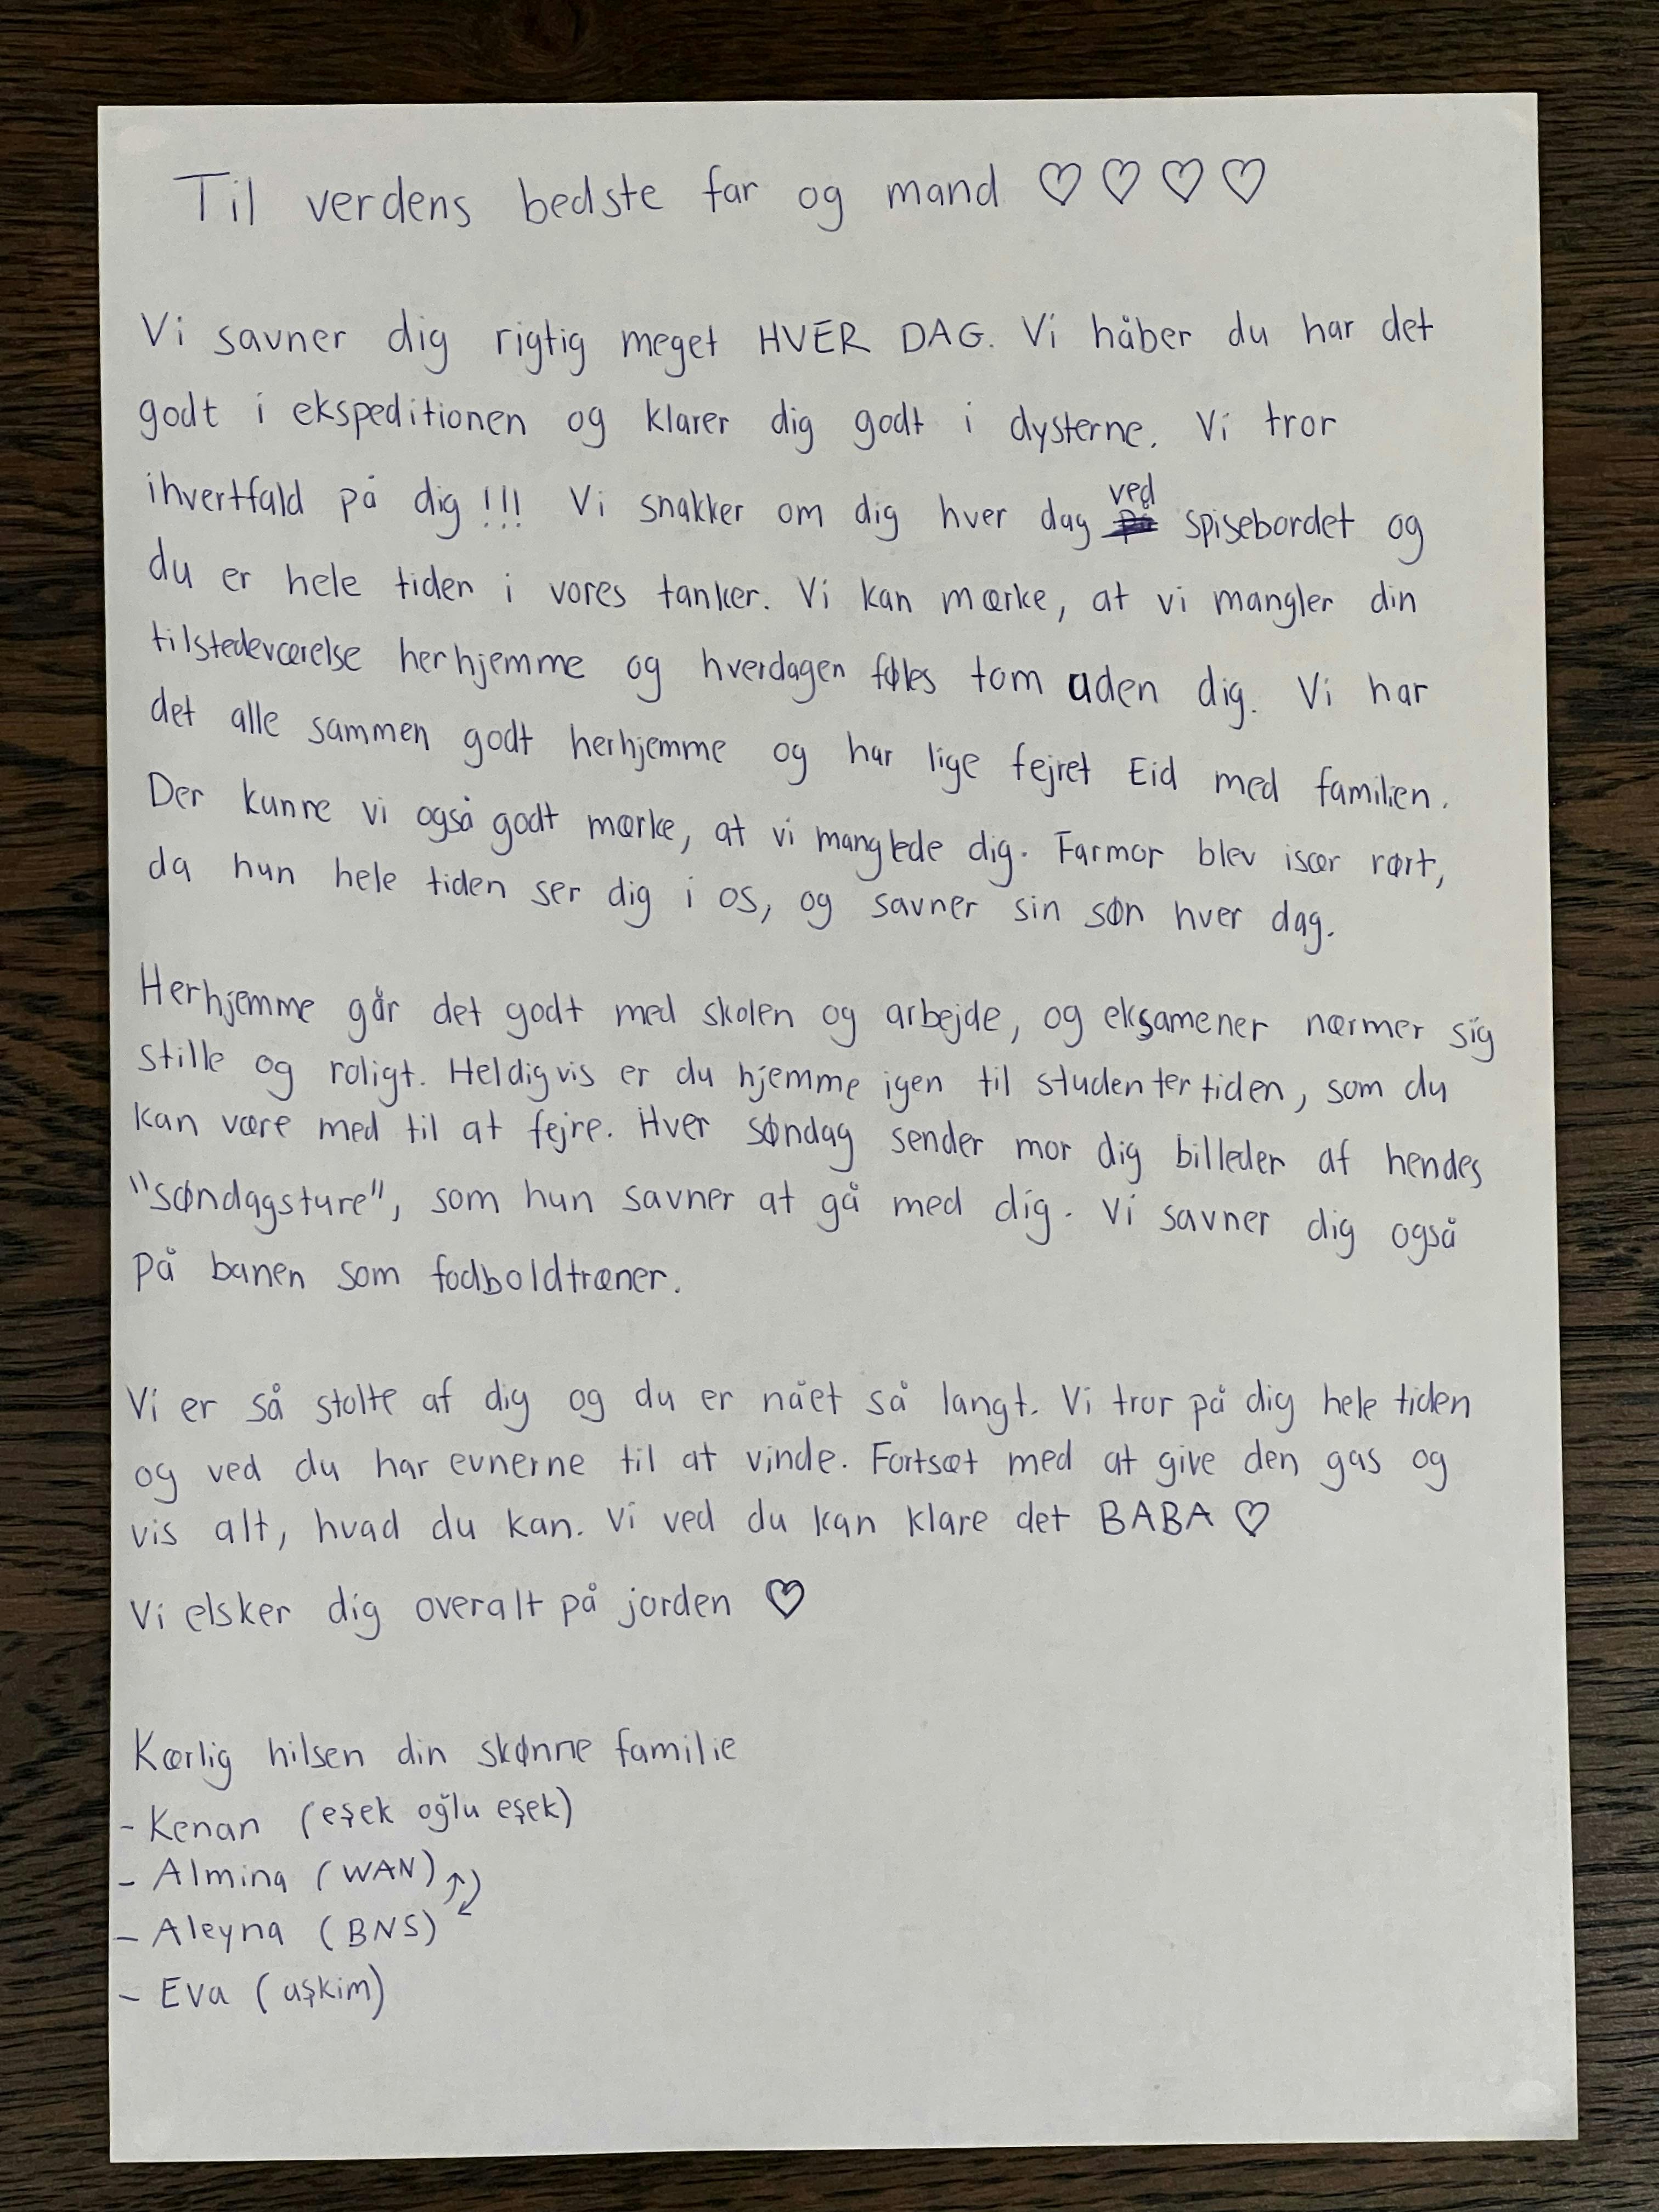 Til verdens bedste far og mand ♡ ♡ ♡ ♡
Vi savner dig rigtig meget HVER DAG. Vi håber du har det
godt i ekspeditionen og klarer dig godt i dysterne. Vi tror
ihvertfald på dig!!! Vi snakker om dig hver dag ved spisebordet og
du er hele tiden i vores tanker. Vi kan mærke, at vi mangler din
tilstedeværelse herhjemme og hverdagen føles tom uden dig. Vi har
det alle sammen godt herhjemme og har lige fejret Eid med familien.
Der kunne vi også godt mærke, at vi manglede dig. Farmor blev især rørt,
da hun hele tiden ser dig i os, og savner sin søn hver dag.
Herhjemme går det godt med skolen og arbejde, og eksamener nærmer sig
stille og roligt. Heldigvis er du hjemme igen til studentertiden, som du
kan være med til at fejre. Hver søndag sender mor dig billeder af hendes
"søndagsture", som hun savner at gå med dig. Vi savner dig også
På banen som fodboldtræner.
Vi er så stolte af dig og du er nået så langt. Vi tror på dig hele tiden
og ved du har evnerne til at vinde. Fortsæt med at give den gas og
vis alt, hvad du kan. Vi ved du kan klare det BABA ♡
Vi elsker dig overalt på jorden ♡
Kærlig hilsen din skønne familie
- Kenan (eşek oğlu eşek)
- Almina (WAN)
- Aleyna (BNS)
- Eva (aşkim)